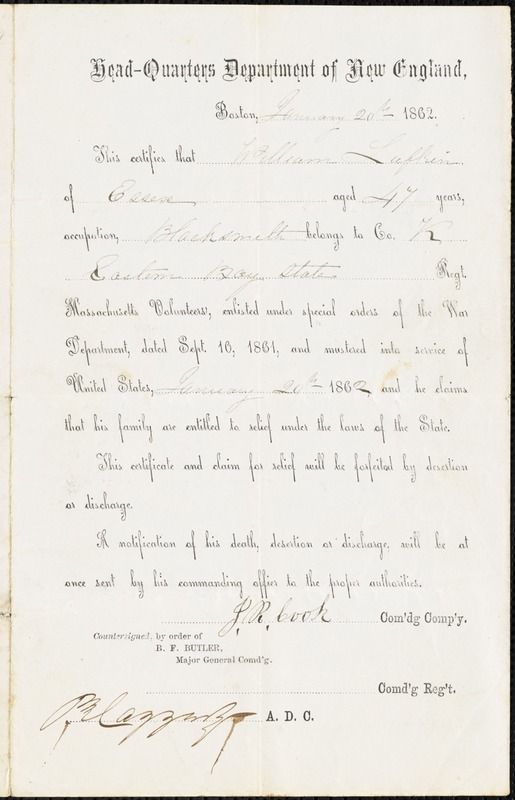 Head-Quarters Department of New England,
Boston, January 20th 1862.
This certifies that William Lufkin
of Essex aged 47 years,
occupation, Blacksmith belongs to Co. K
Eastern Bay State Regt.
Massachusetts Volunteers, enlisted under special orders of the War
Department, dated Sept. 10, 1861, and mustered into service of
United States, January 20th 1862 and he claims
that his family are entitled to relief under the laws of the State.
This certificate and claim for relief will be forfeited by desertion
or discharge.
A notification of his death, desertion or discharge, will be at
once sent by his commanding officer to the proper authorities.
J. R. Cook Com'dg Comp'y.
Countersigned, by order of
B. F. BUTLER,
Major General Comd'g.
Comd'g Reg't.
A. D. C.